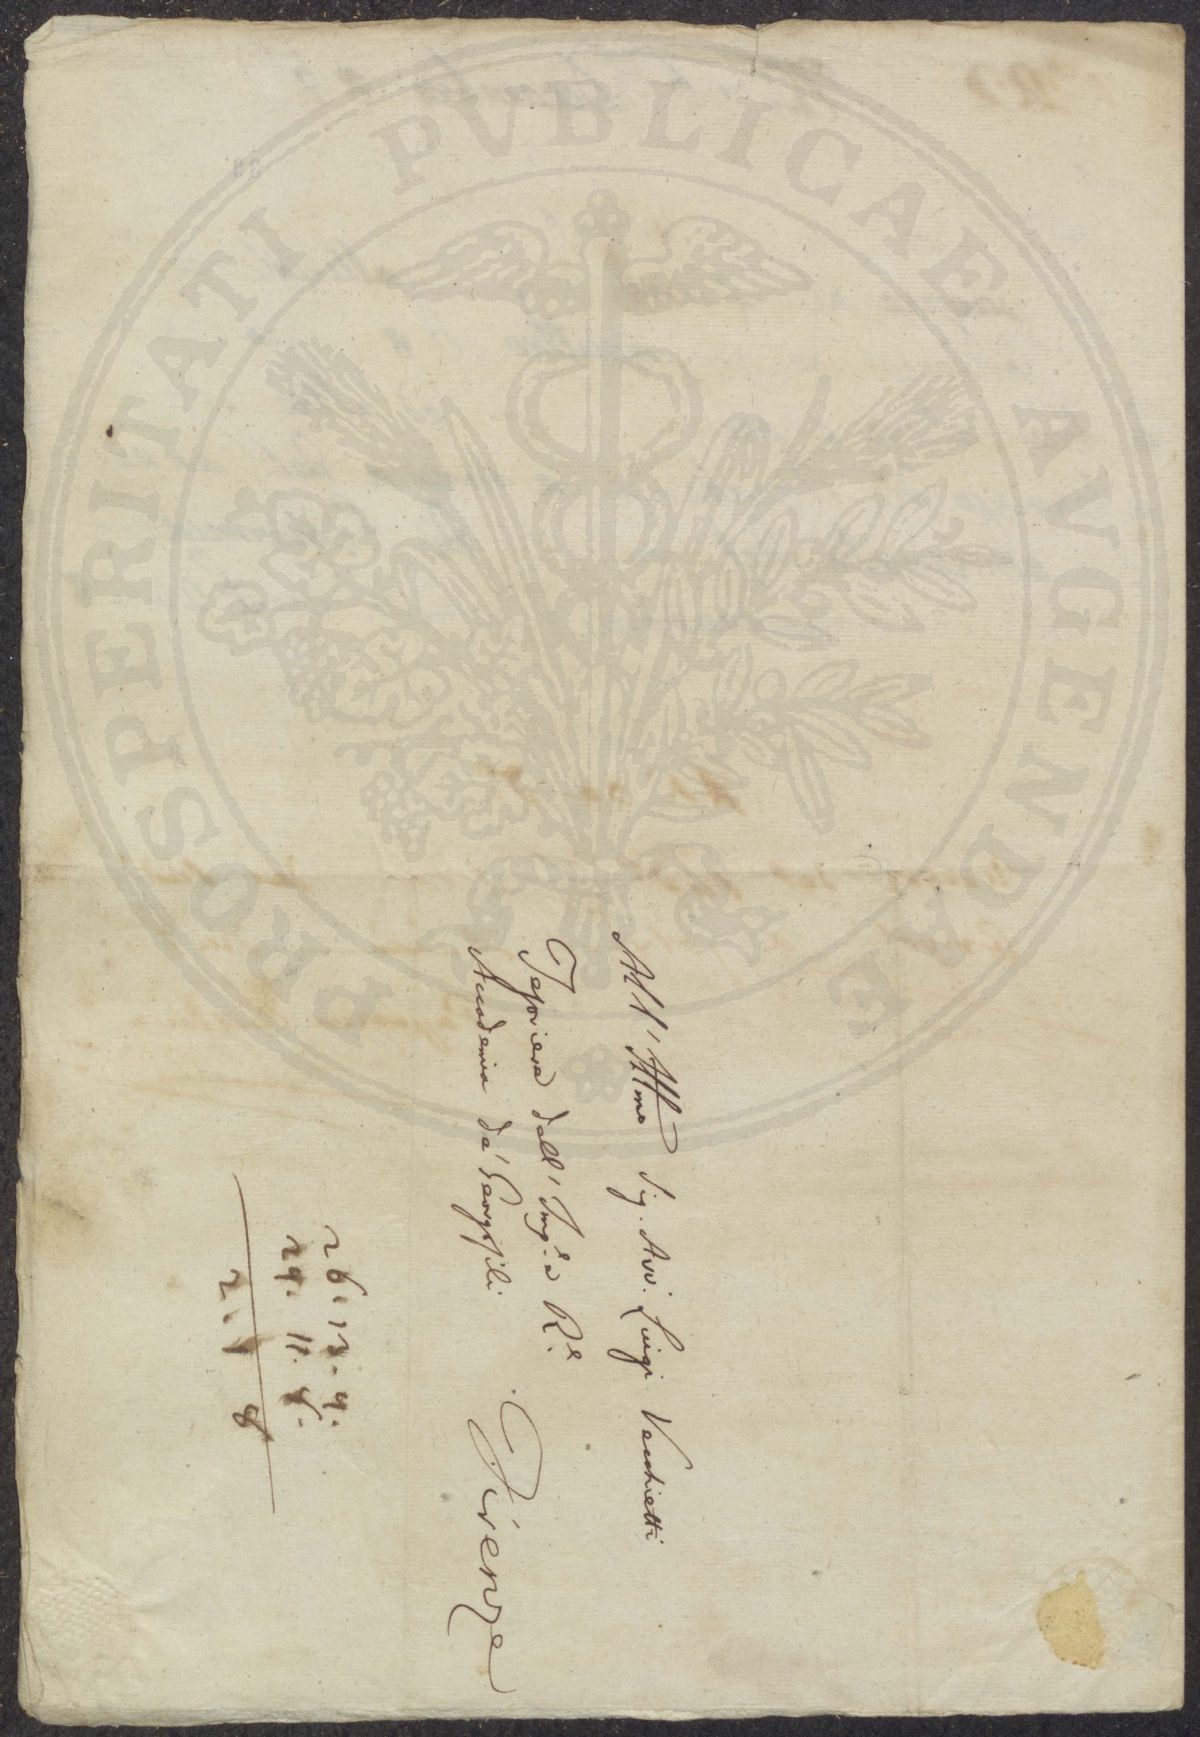 PROSPERITATI PVBLICAE AVGENDAE
All' Illmo Sig. Avv. Luigi Vecchietti
Tesoriere dell' Imp.e e R.e
Accademia de' Georgofili.
Firenze
26. 13. 4.
29. 11. 8.
2. 1 8